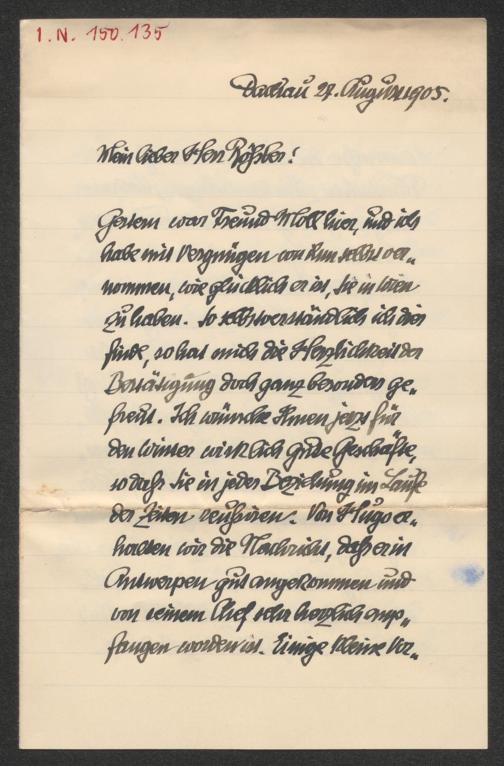 I.N. 150.135
Dachau 27. August 1905.
Mein lieber Herr Rößler!
Gestern war Freund Moll hier, und ich
habe mit Vergnügen von ihm selbst ver-
nommen, wie glücklich er ist, Sie in Wien
zu haben. So selbstverständlich ich dies
finde, so hat mich die Herzlichkeit der
Bestätigung doch ganz besonders ge-
freut. Ich wünsche Ihnen jetzt für
den Winter wirklich gute Geschäfte,
so daß Sie in jeder Beziehung im Laufe
der Zeiten
Von Hugo er-
halten wir die Nachricht, daß er in
Antwerpen gut angekommen und
von seinem Chef sehr herzlich emp-
fangen worden ist. Einige kleine Vor-